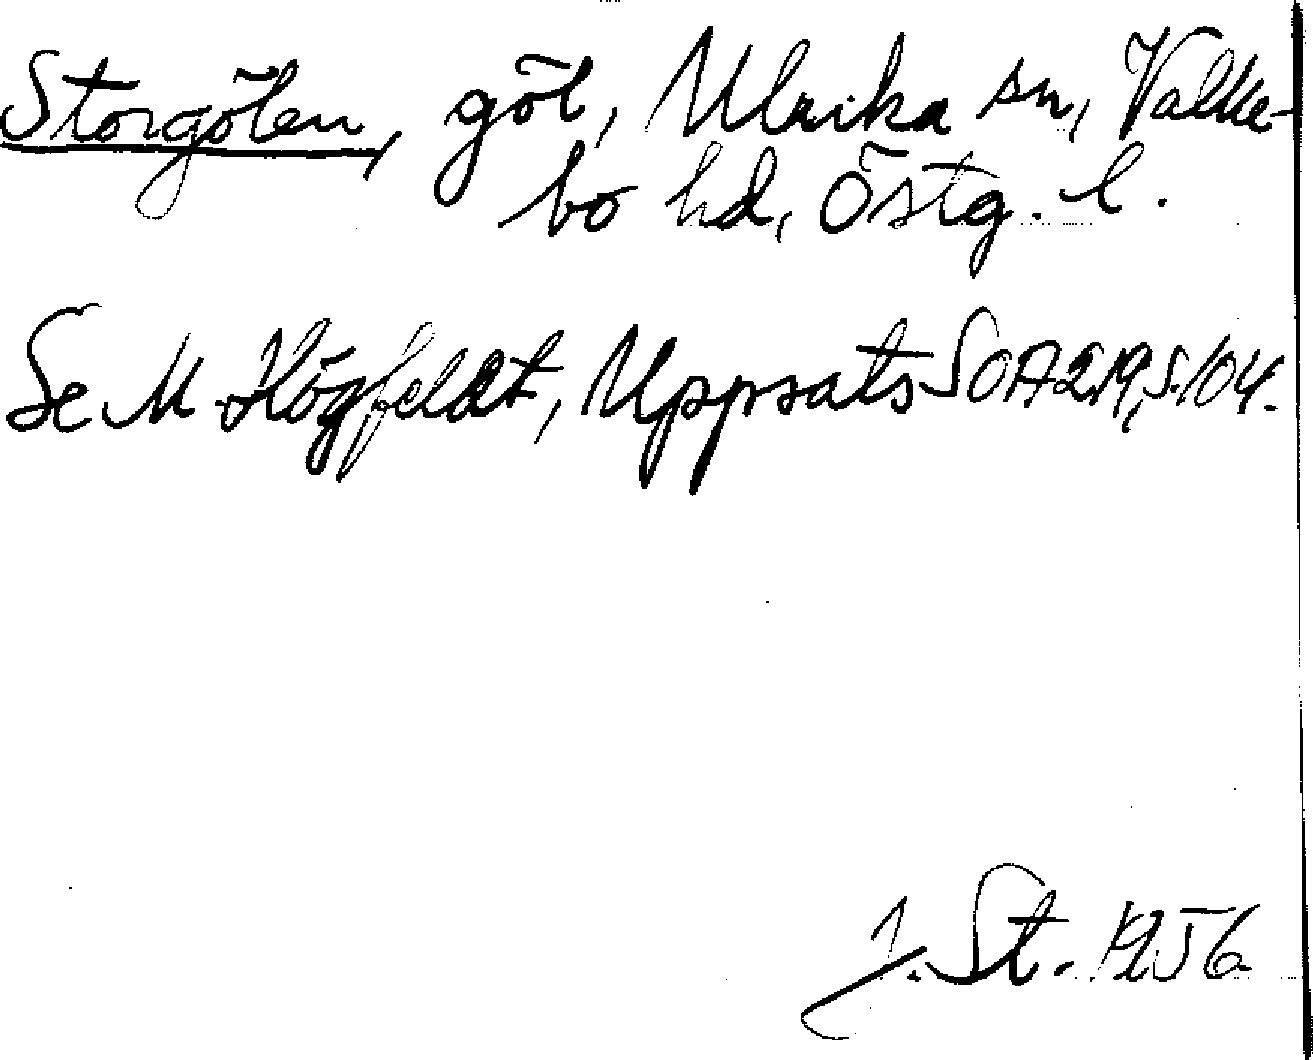 Storgölen, göl, Ulrika sn, Valke-
bo hd, Östg. l.
Se M Högfeldt, Uppsats SOA 219, s. 104.
J. St. 1956